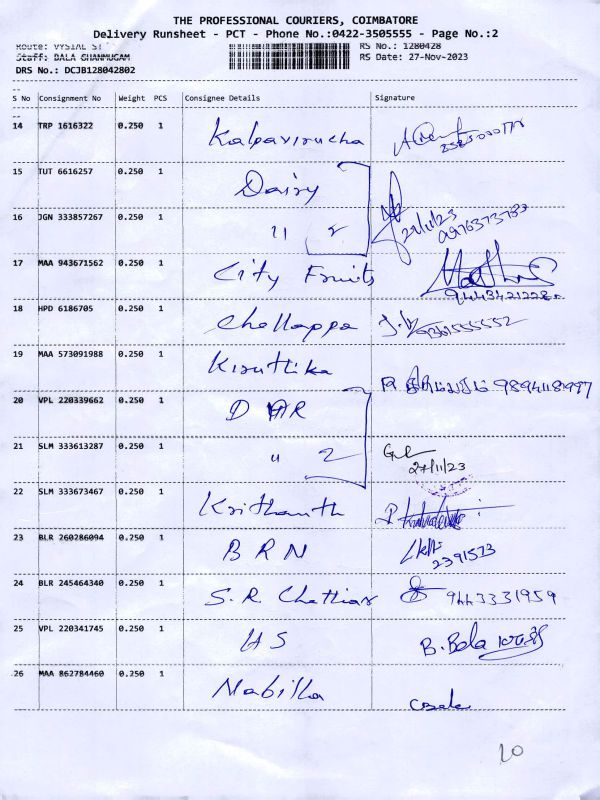 THE PROFESSIONAL COURIERS, COIMBATORE
Delivery Runsheet - PCT - Phone No.:0422-3505555 - Page No.:2
Route: VYSIAL ST RS No.: 1280428
Staff: BALA SHANMUGAM RS Date: 27-Nov-2023
DRS No.: DCJB128042802
S No Consignment No Weight PCS Consignee Details Signature
14 TRP 1616322 0.250 1 Kalpavirucha
15 TUT 6616257 0.250 1 Dairy
16 JGN 333857267 0.250 1 11 2 27/11/23
17 MAA 943671562 0.250 1 City Fruits
18 HPD 6186705 0.250 1 Chellappa
19 MAA 573091988 0.250 1 Kiruthika
20 VPL 220339662 0.250 1 DAR
21 SLM 333613287 0.250 1 11 2 27/11/23
22 SLM 333673467 0.250 1 Krithanth
23 BLR 260286094 0.250 1 BRN 2391573
24 BLR 245464340 0.250 1 S.R. Chettiar 9443331959
25 VPL 220341745 0.250 1 US B. Bala
26 MAA 862784460 0.250 1 Nabilla